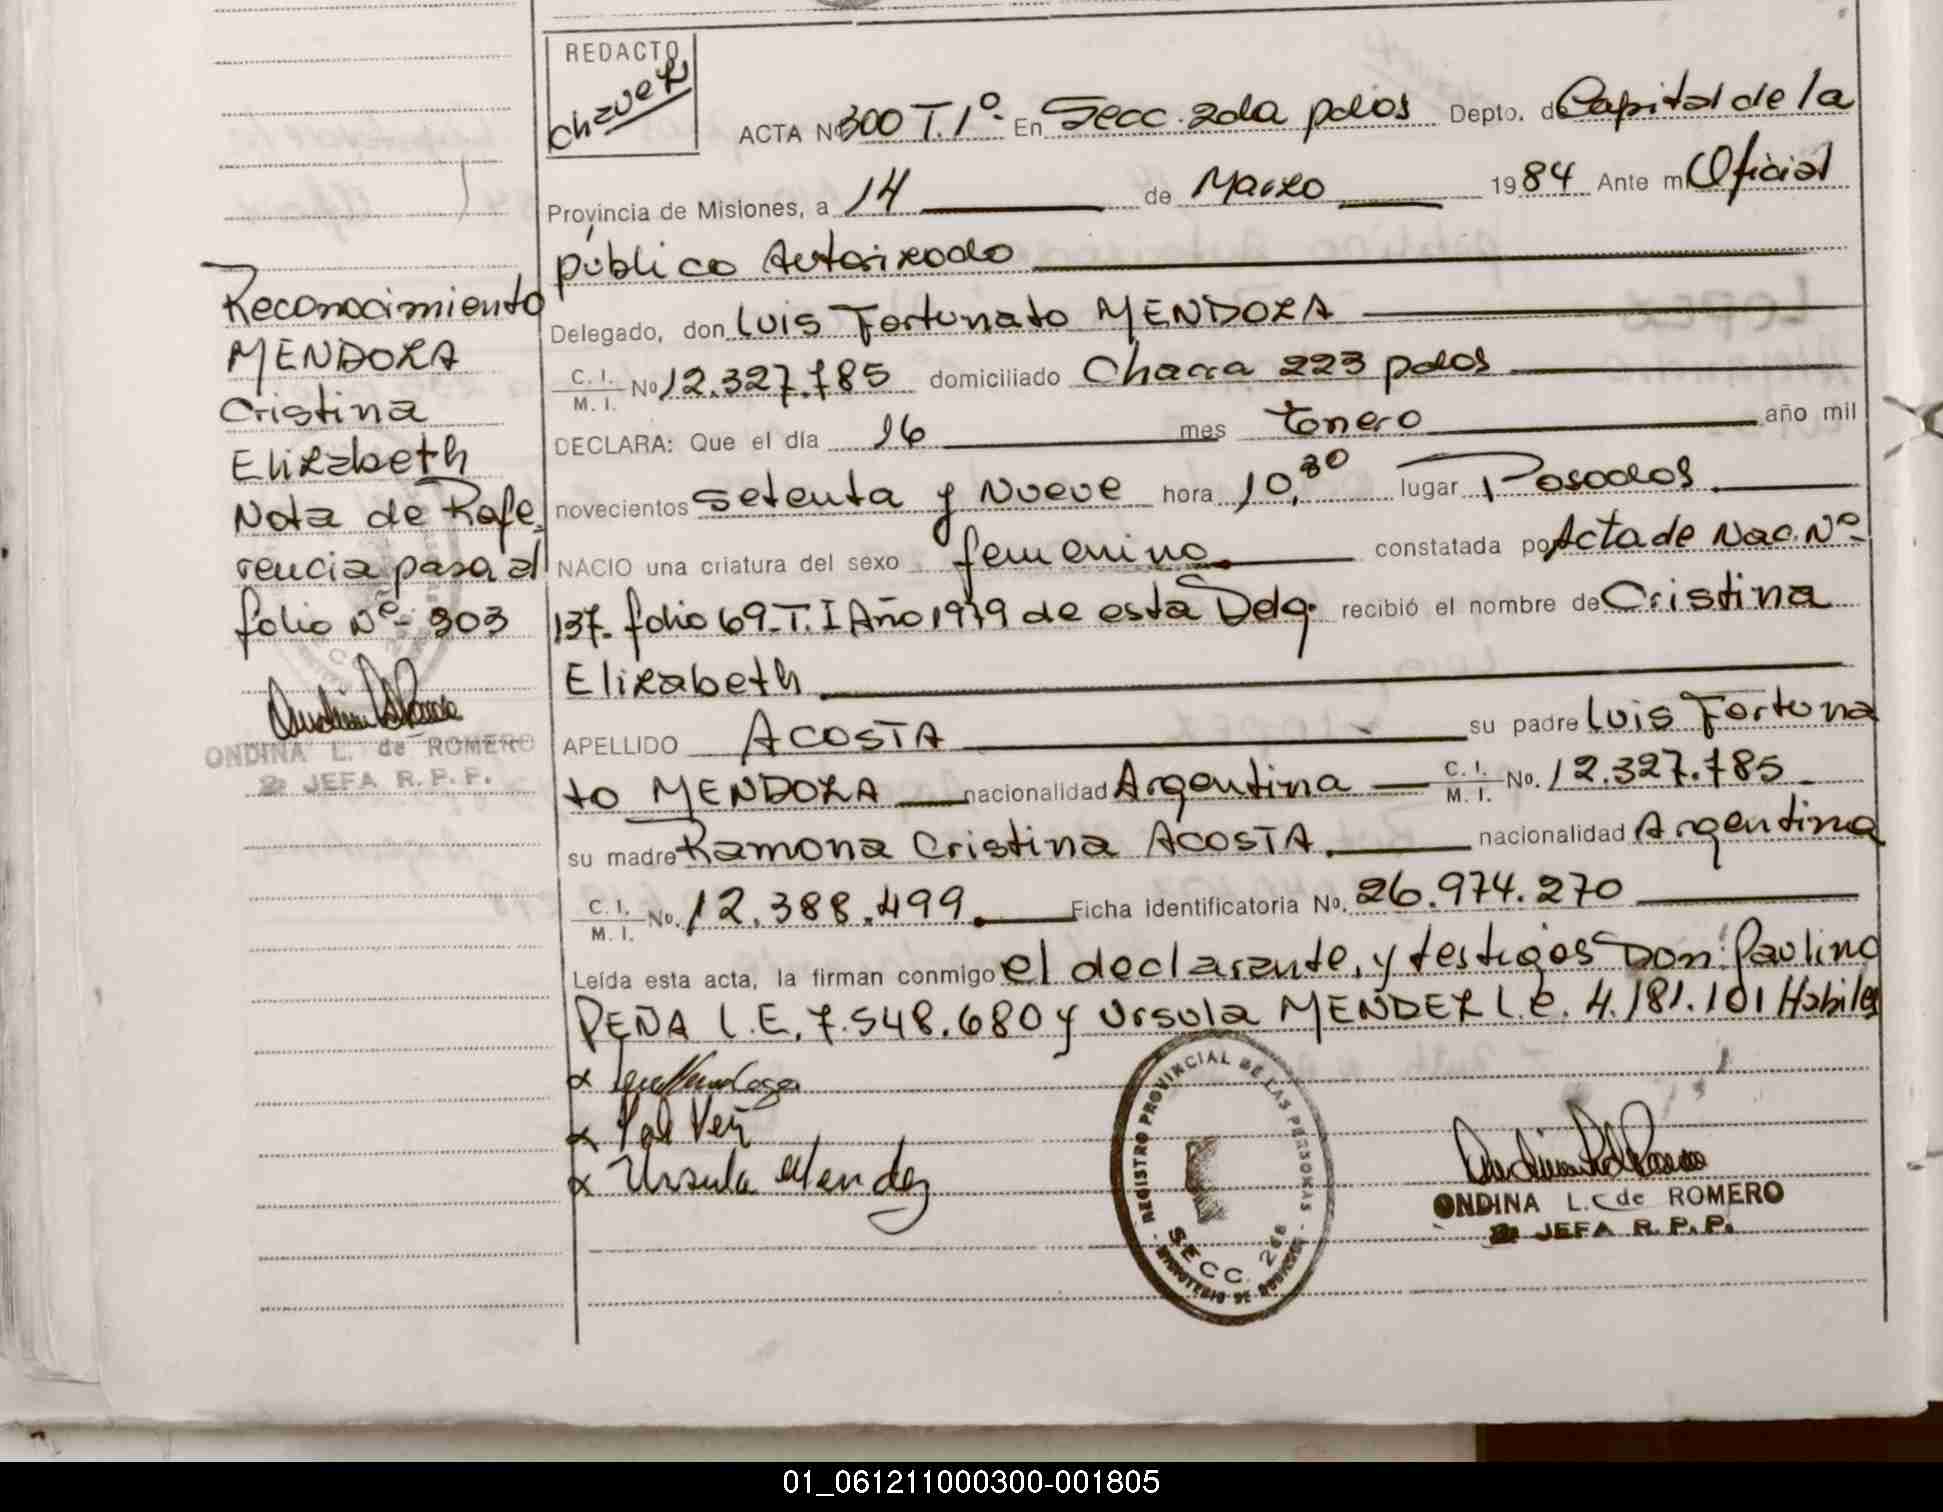 REDACTO
Chavez
ACTA Nº 300 T. 1º. En Secc. 2da pdas Depto. de Capital de la
Provincia de Misiones, a 14 de Marzo 1984 Ante mi Oficial
público Autorizado
Delegado, don Luis Fortunato MENDOZA
C. I. / M. I. Nº 12.327.785 domiciliado Chacra 223 pdas
DECLARA: Que el día 16 mes Enero año mil
novecientos setenta y Nueve hora 10,30 lugar Posadas
NACIO una criatura del sexo femenino constatada por Acta de Nac. Nº
137. folio 69. T. I Año 1979 de esta Delg. recibió el nombre de Cristina
Elizabeth
APELLIDO ACOSTA su padre Luis Fortuna
to MENDOZA nacionalidad Argentina C. I. / M. I. No. 12.327.785
su madre Ramona Cristina ACOSTA nacionalidad Argentina
C. I. / M. I. No. 12.388.499. Ficha identificatoria No. 26.974.270
Leída esta acta, la firman conmigo el declarante, y testigos Don: Paulino
PEÑA L.E. 7.548.680 y Ursula MENDEZ L.e. 4.181.101 Habiles
Ursula Mendez
REGISTRO PROVINCIAL DE LAS PERSONAS
SECC. 2da
MINISTERIO DE GOBIERNO
ONDINA L. de ROMERO
JEFA R. P. P.
Reconocimiento
MENDOZA
Cristina
Elizabeth
Nota de Refe
rencia pasa al
folio Nº 303
ONDINA L. de ROMERO
JEFA R. P. P.
01_061211000300-001805